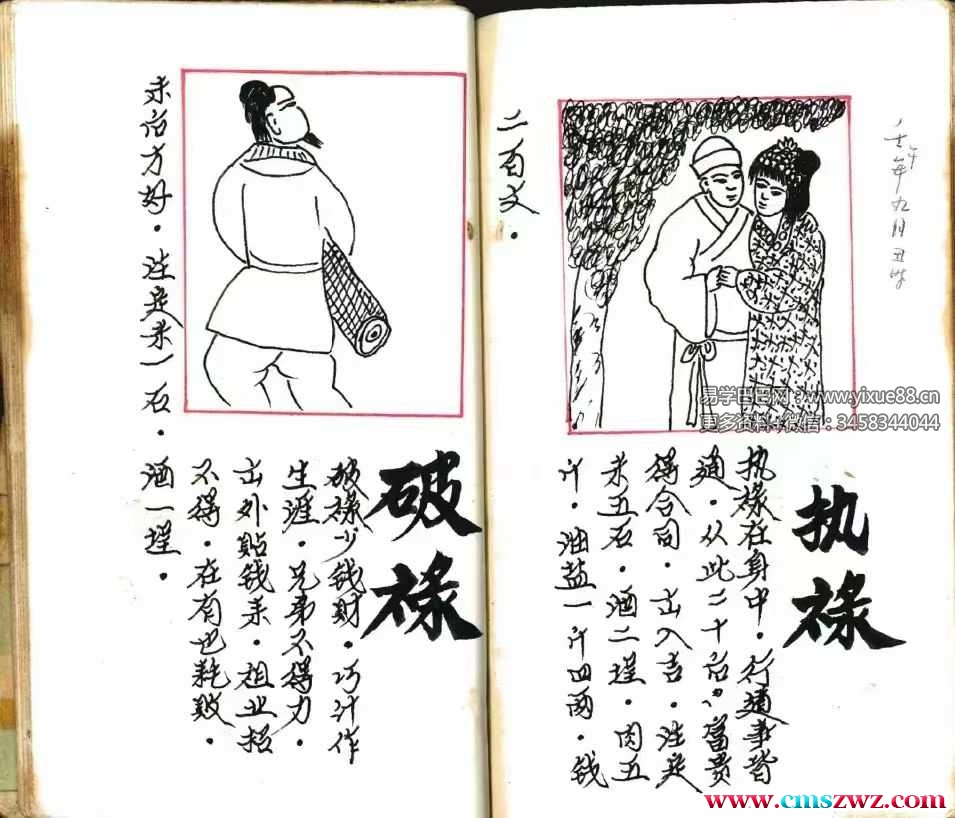 壬午年九月丑时
执祿
执祿在身中。行通事皆
通。从此二十后富贵
得合同。出入吉。注定
米五石。酒二埕。肉五
斤。油盐一斤四两。钱
二百文。
破祿
破祿少钱财。巧计作
生涯。兄弟不得力。
出外贴钱来。祖业招
不得。在有也耗败。
末后方好。注定米一石。
酒一埕。
易学巴巴网:www.yixue88.cn
更多资料+微信:3458344044
www.cmszwz.com